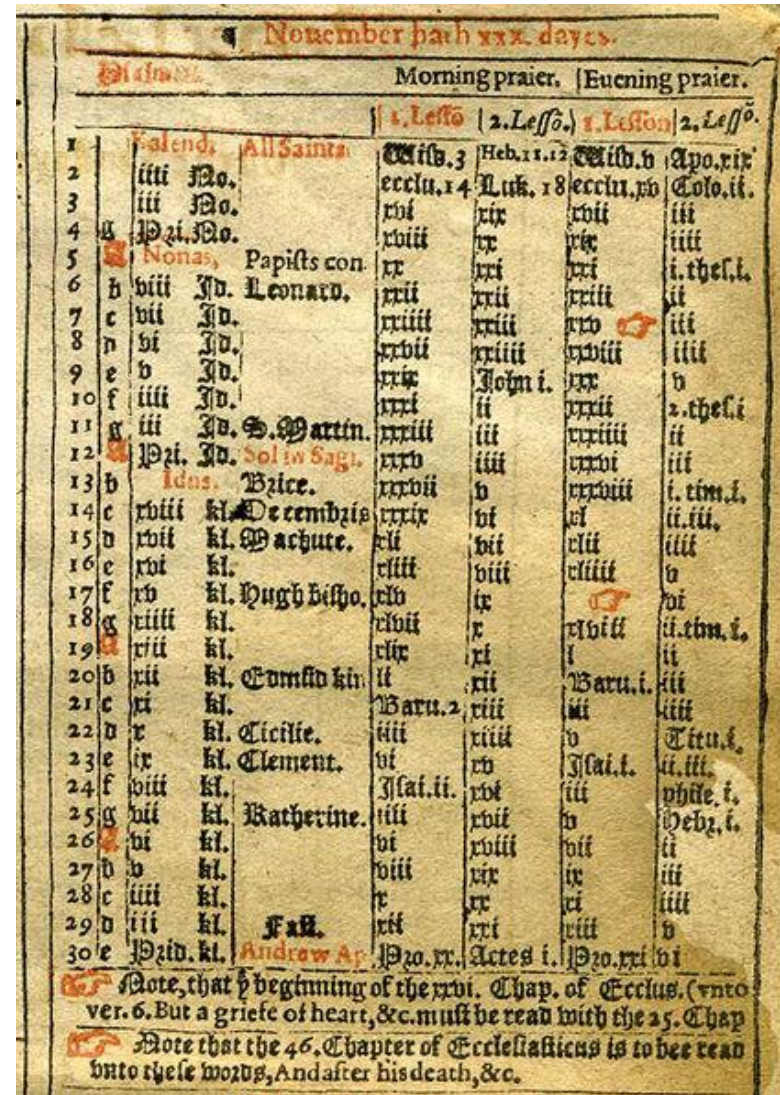 Nouember hath xxx. dayes.
Psalmes. Morning praier. Euening praier.
1.Lessõ 2.Lessõ. 1.Lesson 2.Lessõ.
1 Kalend. All Saints Wisd.3 Heb.11.12 Wisd.v Apo.xix
2 iiii No. ecclu.14 Luk.18 ecclu.xv Colo.ii.
3 iii No. xvi xix xvii iii
4 g Pri.No. xviii xx xix iiii
5 A Nonas, Papists con. xx xxi xxi i.thes.i.
6 b viii Id. Leonard. xxii xxii xxiii ii
7 c vii Id. xxiiii xxiii xxv ☞ iii
8 d vi Id. xxvii xxiiii xxviii iiii
9 e v Id. xxix John i. xxx v
10 f iiii Id. xxxi ii xxxii 2.thes.i
11 g iii Id. S.Martin. xxxiii iii xxxiiii ii
12 A Pri. Id. Sol in Sagi. xxxv iiii xxxvi iii
13 b Idus. Brice. xxxvii v xxxviii i.tim.i.
14 c xviii kl. Decembris xxxix vi xl ii.iii.
15 d xvii kl. Machute. xli vii xlii iiii
16 e xvi kl. xliii viii xliiii v
17 f xv kl. Hugh bisho. xlv ix ☞ vi
18 g xiiii kl. xlvii x xlviii ii.tim.i.
19 A xiii kl. xlix xi l ii
20 b xii kl. Edmũd kin li xii Baru.i. iii
21 c xi kl. Baru.2 xiii iii iiii
22 d x kl. Cicilie. iiii xiiii v Titu.i.
23 e ix kl. Clement. vi xv Isai.i. ii.iii.
24 f viii kl. Isai.ii. xvi iii phile.i.
25 g vii kl. Katherine. iiii xvii v Hebr.i.
26 A vi kl. vi xviii vii ii
27 b v kl. viii xix ix iii
28 c iiii kl. x xx xi iiii
29 d iii kl. Fast. xii xxi xiii v
30 e Prid.kl. Andrew Ap Pro.xx. Actes i. Pro.xxi vi
☞ Note, that ẙ beginning of the xxvi. Chap. of Ecclus. (vnto
ver.6. But a griefe of heart, &c. must be read with the 25. Chap
☞ Note that the 46. Chapter of Ecclesiasticus is to bee read
vnto these words, And after his death, &c.